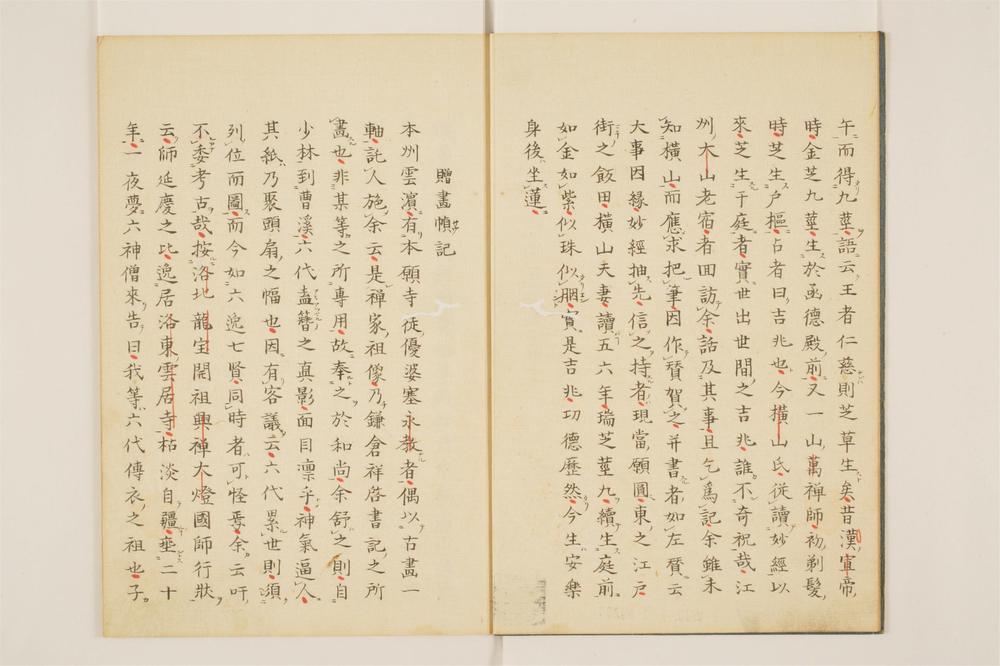 午而得九莖語云王者仁慈則芝草生矣昔漢宣帝
時金芝九莖生於函德殿前又一山萬禅師初剃髮
時芝生戸樞占者曰吉兆也今横山氏従讀妙經以
來芝生于庭者實世出世間之吉兆誰不奇祝哉江
州大山老宿者回訪余話及其事且乞爲記余雖未
知横山而應求把筆因作賛賀之并書者如左賛云
大事因縁妙經抽先信之持者現當願圓東之江戸
街之飯田横山夫妻讀五六年瑞芝莖九續生庭前
如金如紫似珠似胭實是吉兆功德歷然今生安樂
身後坐蓮
贈畫幀記
本州雲濵有本願寺徒優婆塞永教者偶以古畫一
軸託人施余云是禅家祖像乃鎌倉祥啓書記之所
畫也非某等之所專用故奉之於和尚余舒之則自
少林到曹溪六代盍簪之真影面目凛乎神氣逼人
其紙乃聚頭扇之幅也因有客議云六代累世則須
列位而圖而今如六逸七賢同時者可怪焉余云吁
不委考古哉按洛地龍宝開祖興禅大燈國師行狀
云師延慶之比逸居洛東雲居寺枯淡自疆埀二十
年一夜夢六神僧來告曰我等六代傳衣之祖也子